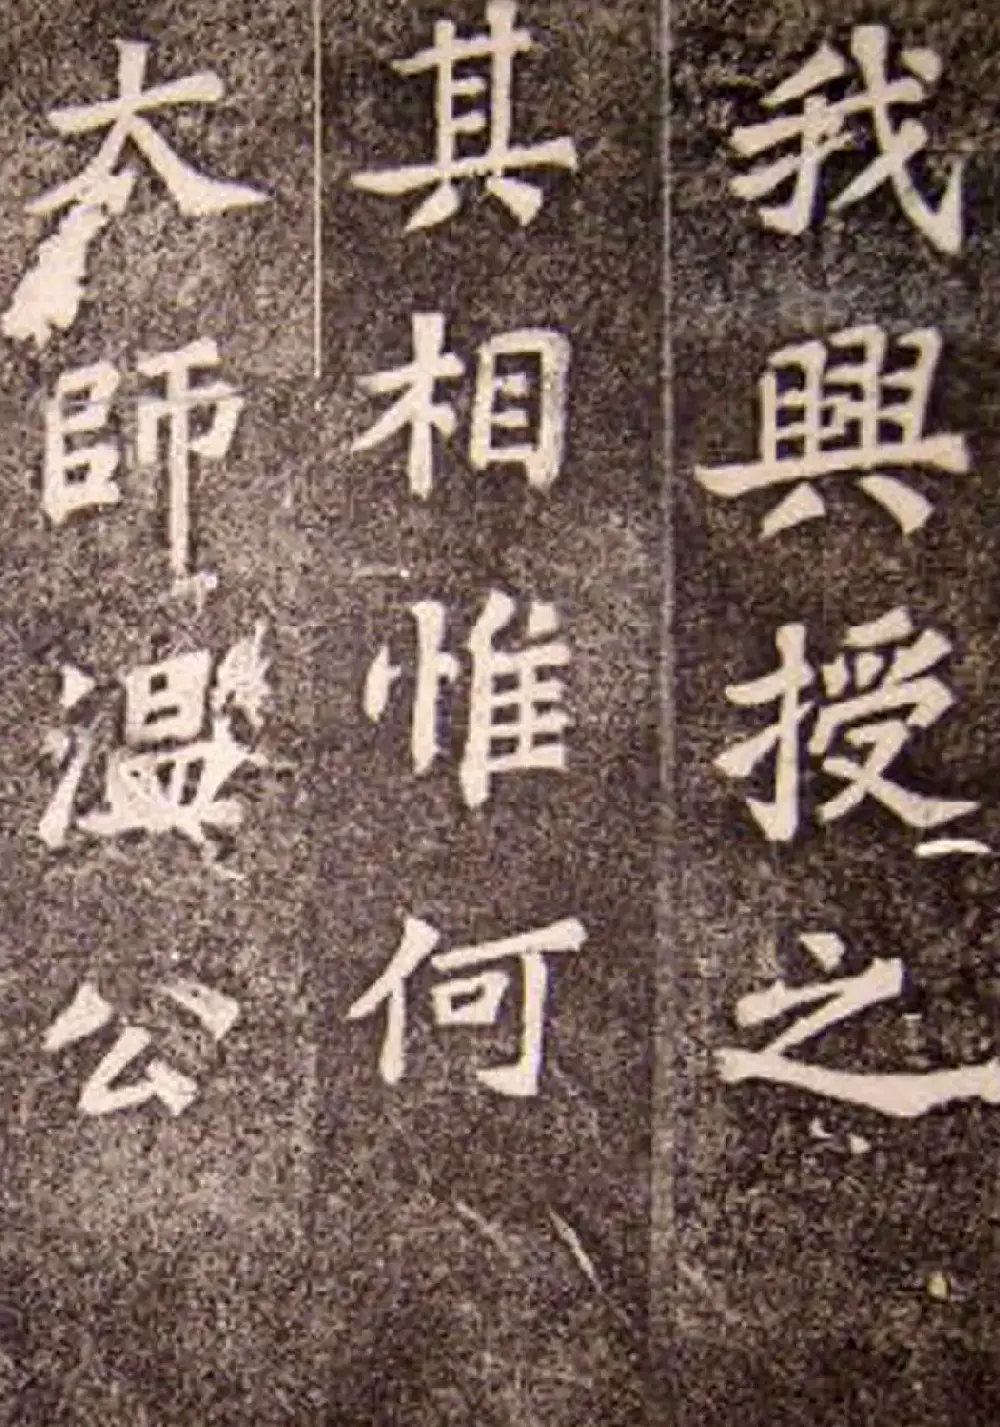 我興授之
其相惟何
太師溫公